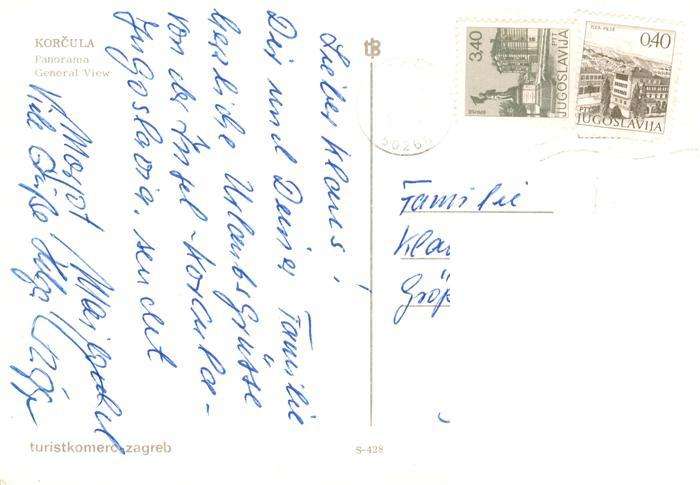 KORČULA
Panorama
General View
Lieber Klaus!
Dir und Deiner Familie
herzliche Urlaubsgrüsse
von der Insel-Korcula-
Jugoslavia. sendet
Viele Grüße
turistkomerc-zagreb
S-428
tB
3,40
PTT
JUGOSLAVIJA
0,40
PTT
JUGOSLAVIJA
50260
Familie
Kla
Gröp